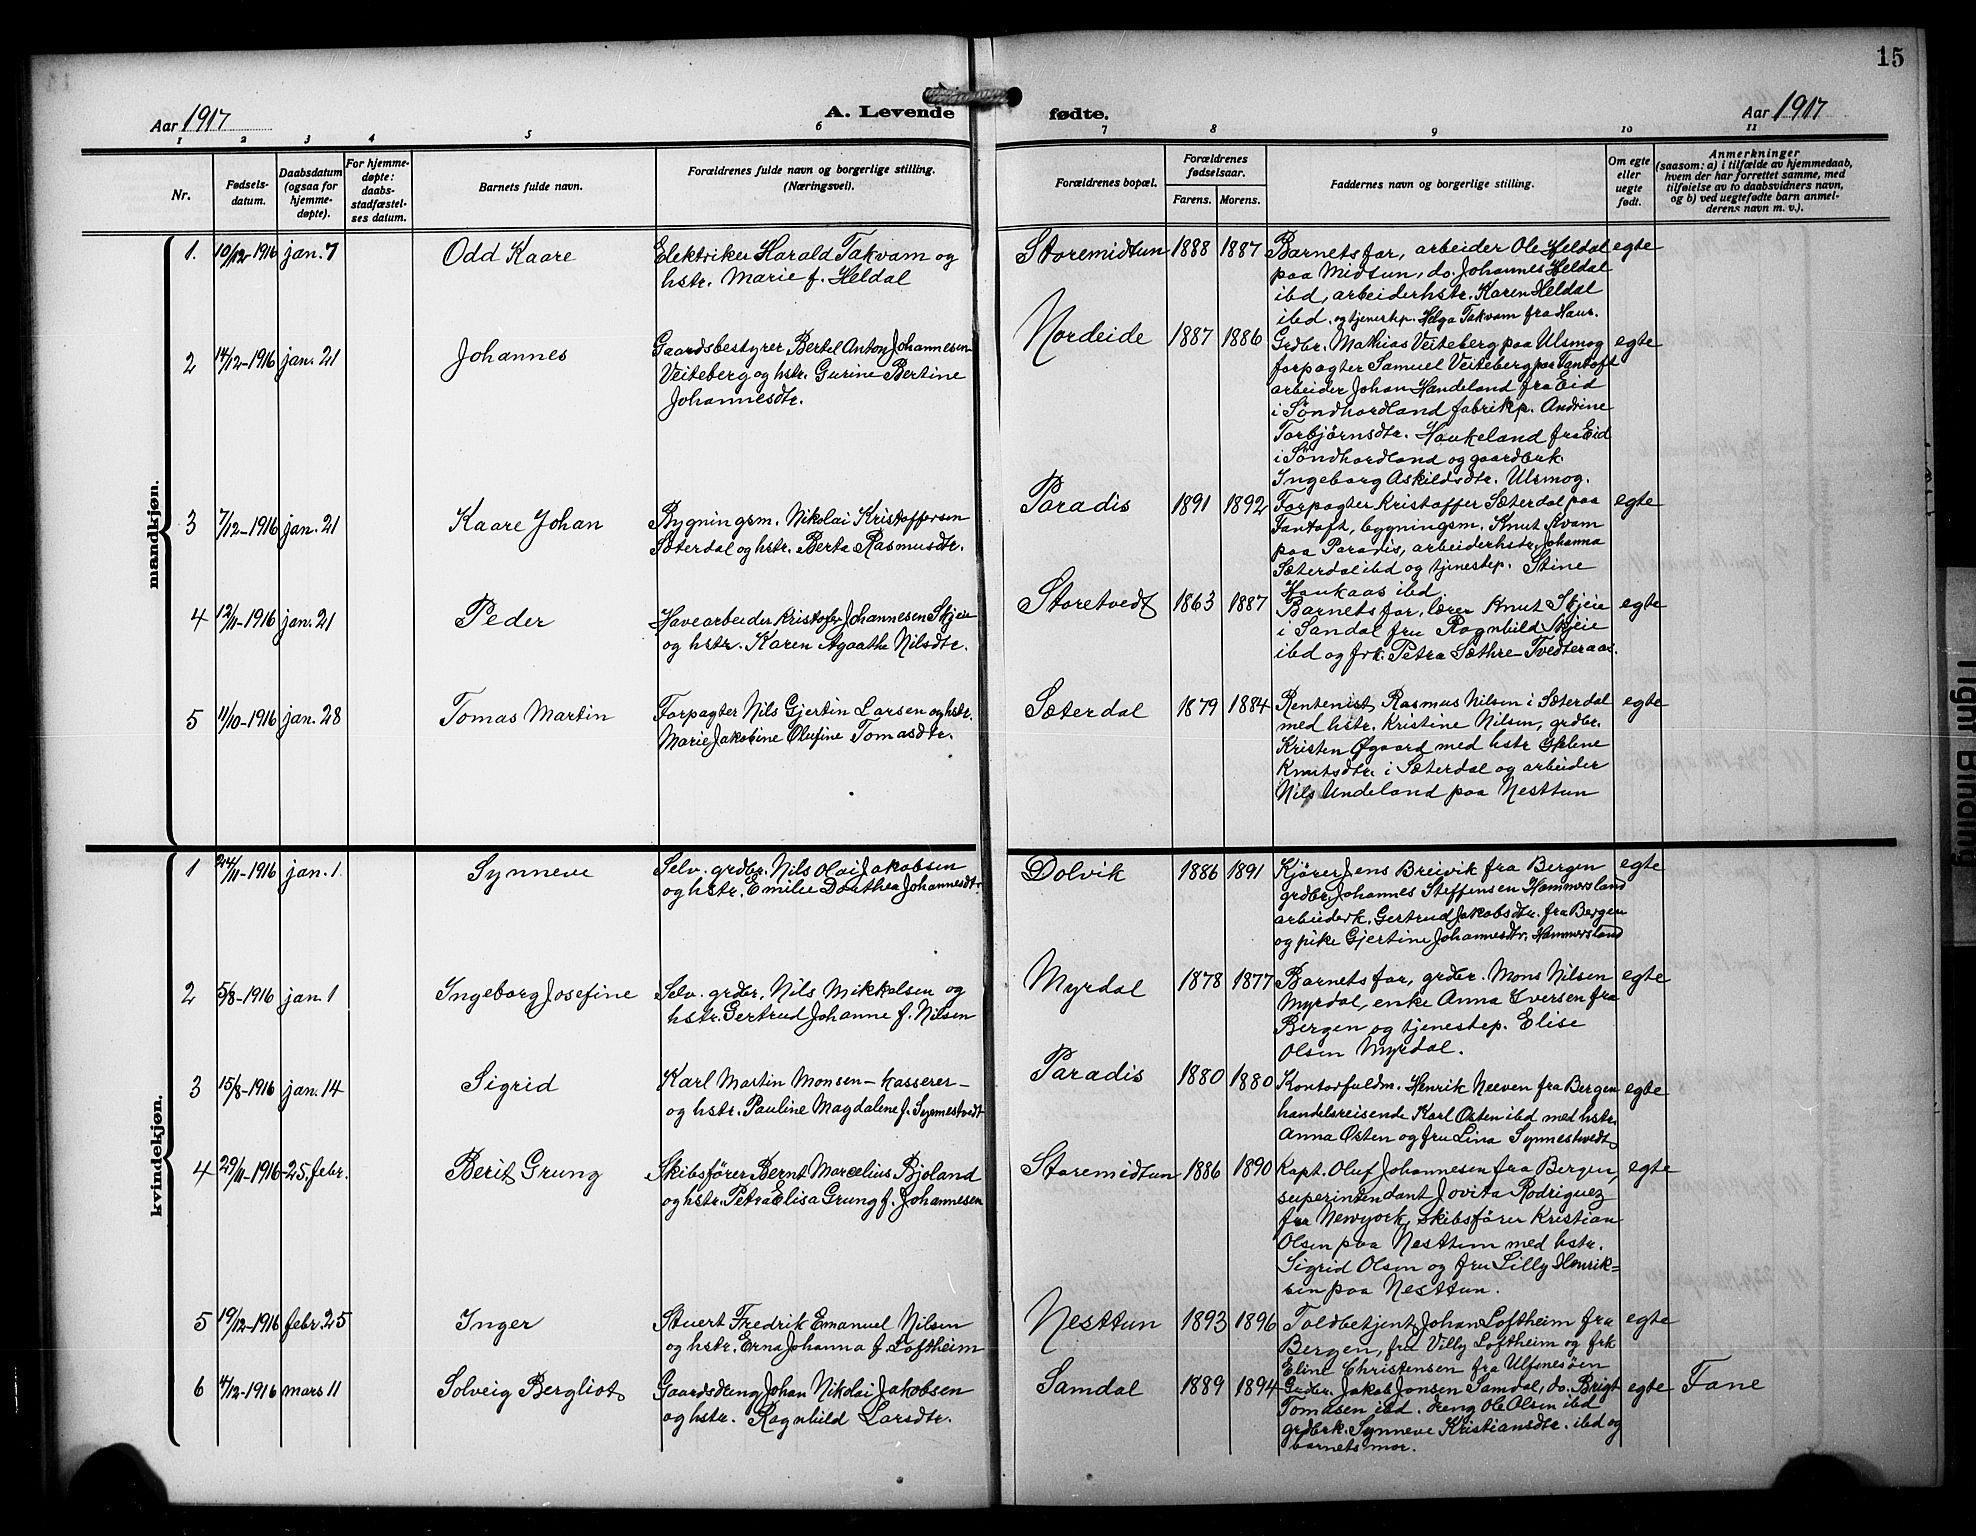 15
Aar 1917
A. Levende fødte.
Aar 1917
1 2 3 4 5 6 7 8 9 10 11
Nr.
Fødsels-
datum.
Daabsdatum
(ogsaa for
hjemme-
døpte).
For hjemme-
døpte:
daabs-
stadfæstel-
ses datum.
Barnets fulde navn.
Forældrenes fulde navn og borgerlige stilling.
(Næringsvei).
Forældrenes bopæl.
Forældrenes
fødselsaar.
Farens. Morens.
Faddernes navn og borgerlige stilling.
Om egte
eller
uegte
født.
Anmerkninger
(saasom: a) i tilfælde av hjemmedaab,
hvem der har forrettet samme, med
tilføielse av to daabsvidners navn,
og b) ved uegtefødte barn anmel-
derens navn m. v.).
mandkjøn.
1. 10/12-1916 jan. 7 Odd Kaare
Elektriker Harald Takvam og
hstr. Marie f. Heldal
Storemidtun 1888 1887
Barnets far, arbeider Ole Heldal
paa Midtun, do. Johannes Heldal
ibd, arbeiderhstr. Karen Heldal
ibd. og tjenerhp. Helga Takvam fra Haus.
egte
2 14/12-1916 jan. 21 Johannes
Gaardsbestyrer Bertel Anton Johannesen
Veiteberg og hstr. Gurine Bertine
Johannesdtr.
Nordeide 1887 1886
Grdbr. Mathias Veiteberg paa Ulsmog
forpagter Samuel Veiteberg paa Fantoft
arbeider Johan Handeland fra Eid
i Söndhordland fabrikp. Andrine
Torbjørnsdtr. Haukeland fra Eid
i Söndhordland og gaardbrk.
Ingeborg Askildsdtr. Ulsmog.
egte
3 7/12-1916 jan. 21 Kaare Johan
Bygningsm. Nikolai Kristoffersen
Sæterdal og hstr. Berta Rasmusdtr.
Paradis 1891 1892
Forpagter Kristoffer Sæterdal paa
Fantoft, bygningsm. Knut Kvam
paa Paradis, arbeiderhstr. Johanna
Sæterdal ibd og tjenestep. Stine
Haukaas ibd.
egte
4 12/11-1916 jan. 21 Peder
Havearbeider Kristofer Johannesen Skjeie
og hstr. Karen Agaathe Nilsdtr.
Storetvedt 1863 1887
Barnets far, lærer Knut Skjeie
i Sandal fru Ragnhild Skjeie
ibd og frk. Petra Sæthre Tvedteraas.
egte
5 11/10-1916 jan. 28 Tomas Martin
Forpagter Nils Gjertin Larsen og hstr.
Marie Jakobine Olufine Tomasdtr.
Sæterdal 1879 1884
Rentenist Rasmus Nilsen i Sæterdal
med hstr. Kristine Nilsen, grdbr.
Kristen Øgaard med hstr Gjelene
Knutsdtr. i Sæterdal og arbeider
Nils Undeland paa Nesttun
egte
kvindekjøn.
1 24/11-1916 jan. 1. Synneve
Selv. grdbr. Nils Olai Jakobsen
og hstr. Emilie Dorthea Johannesdtr.
Dolvik 1886 1891
Kjører Jens Breivik fra Bergen
grdbr. Johannes Steffensen Hammersland
arbeiderk. Gertrud Jakobsdtr. fra Bergen
og pike Gjertine Johannesdtr. Hammersland
egte
2 5/8-1916 jan. 1 Ingeborg Josefine
Selv. grdbr. Nils Mikkelsen og
hstr. Gertrud Johanne f. Nilsen
Myrdal 1878 1877
Barnets far, grdbr. Mons Nilsen
Myrdal, enke Anna Iversen fra
Bergen og tjenestep. Elise
Olsen Myrdal.
egte
3 15/8-1916 jan. 14 Sigrid
Karl Martin Monsen - kasserer -
og hstr. Pauline Magdalene f. Synnestvedt
Paradis 1880 1880
Kontorfuldm. Henrik Neeven fra Bergen
handelsreisende Karl Østen ibd med hstr.
Anna Østen og fru Lina Synnestvedt
egte
4 29/11-1916 25. febr. Berit Grung
Skibsfører Bernt Marcelius Bjoland
og hstr. Petra Elisa Grung f. Johannesen
Storemidtun 1886 1890
Kapt. Oluf Johannesen fra Bergen,
superintendant Jovita Rodriguez
fra Newyork, skibsfører Kristian
Olsen paa Nesttun med hstr.
Sigrid Olsen og fru Lilly Henrik=
sen paa Nesttun.
egte
5 19/12-1916 febr. 25 Inger
Stuert Fredrik Emanuel Nilsen
og hstr. Erna Johanna f. Loftheim
Nesttun 1893 1896
Toldbetjent Johan Loftheim fra
Bergen, fru Villy Loftheim og frk
Eline Christensen fra Ulfsnesøen
egte
6 4/12-1916 mars 11 Solveig Bergliot
Gaardsdreng Johan Nikolai Jakobsen
og hstr. Ragnhild Larsdtr.
Samdal 1889 1894
Grdbr. Jakob Jonsen Samdal, do. Brigt
Tomasen ibd. dreng Ole Olsen ibd
grdbrk. Synneve Kristiansdtr. ibd og
barnets mor.
egte Fane
Tight Binding